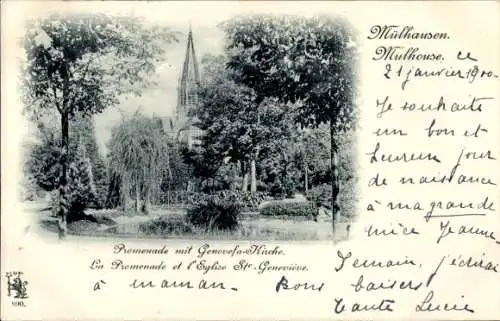 Mülhausen.
Mulhouse. ce
21 janvier 1900.
Je souhaite
un bon et
heureux jour
de naissance
à ma grande
nièce Jeanne
Promenade mit Genovefa-Kirche.
La Promenade et l'Eglise Ste-Geneviève.
Demain, j'écrirai
à maman. Bons baisers
tante Lucie